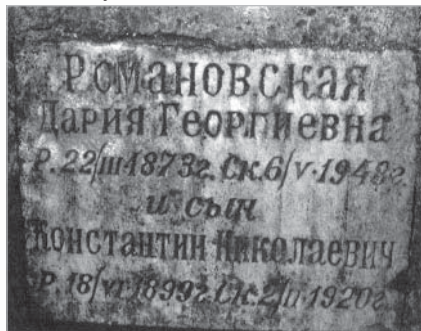 Романовская
Дария Георгиевна
Р. 22/III 1873г. Ск. 6/V-1948г.
и сын
Константин Николаевич
Р. 18/VI 1899г. Ск. 2/II 1920г.